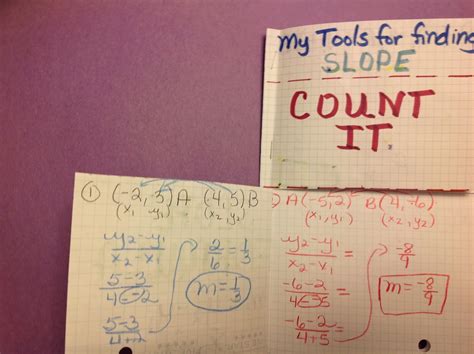 My Tools for finding
SLOPE
COUNT
IT.
① (-2, 5)A (4, 5)B
(x₁ y₁) (x₂, y₂)
y₂-y₁
x₂-x₁
5-3
4--2
5-3
4+2
2/6 = 1/3
m=1/3
) A(-5,2) B(4,-6)
(x₁,y₁) (x₂,y₂)
y₂-y₁
x₂-x₁ =
-6-2
4--5 =
-6-2
4+5 =
-8
9
m=-8/9